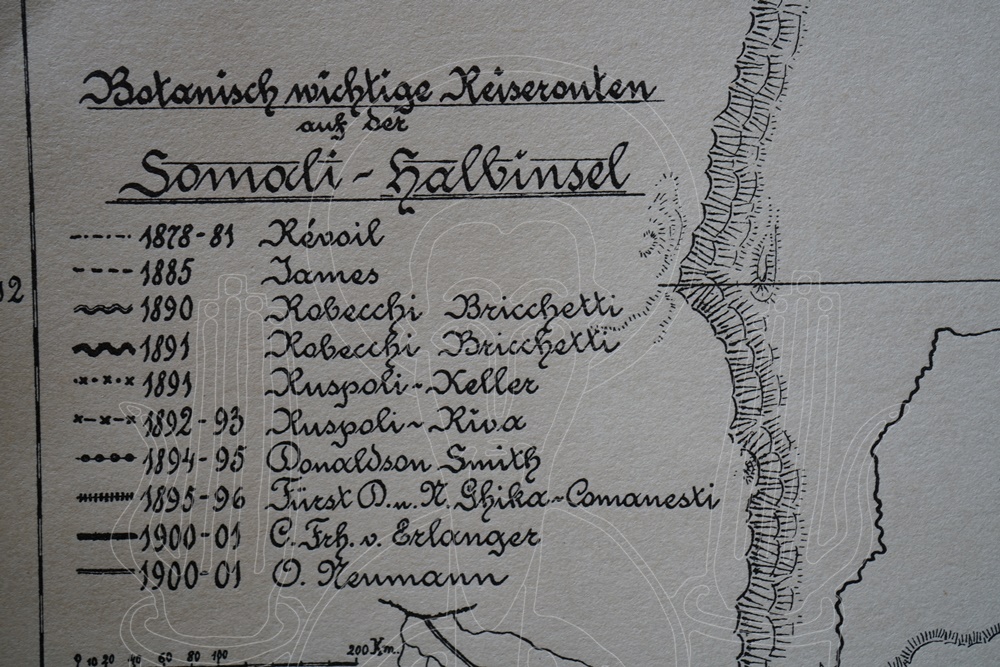 Botanisch wichtige Reiserouten
auf der
Somali-Halbinsel
1878-81 Révoil
1885 James
1890 Robecchi Bricchetti
1891 Robecchi Bricchetti
1891 Ruspoli-Keller
1892-93 Ruspoli-Riva
1894-95 Donaldson Smith
1895-96 Fürst D. u. N. Ghika-Comanesti
1900-01 C. Frh. v. Erlanger
1900-01 O. Neumann
0 10 20 40 60 80 100 200 Km.
12